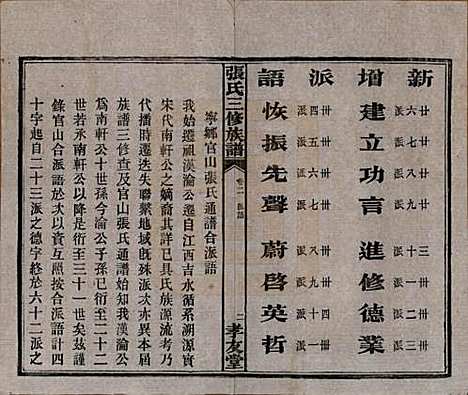 新增派語
建立功言 進修德業
廿六派 廿七派 廿八派 廿九派 三十派 卅一派 卅二派 卅三派
恢振先聲 蔚啓英哲
卅四派 卅五派 卅六派 卅七派 卅八派 卅九派 四十派 卌一派
張氏三修族譜 卷二 派語 二 孝友堂
寧鄉官山張氏通譜合派語
我始遷祖漢淪公遷自江西吉水循系溯源實
宋代南軒公之嫡裔其詳已具氏族源流考乃
代播時遷迭失聯繫地域既殊派次亦異本屆
族譜三修查及官山張氏通譜始知我漢淪公
為南軒公十世孫今漢淪公子孫已衍二十二
世若承南軒公以降是衍至三十一世矣茲謹
錄官山合派語於次以資互照按合派語計四
十字起自二十三派之德字終於六十二派之